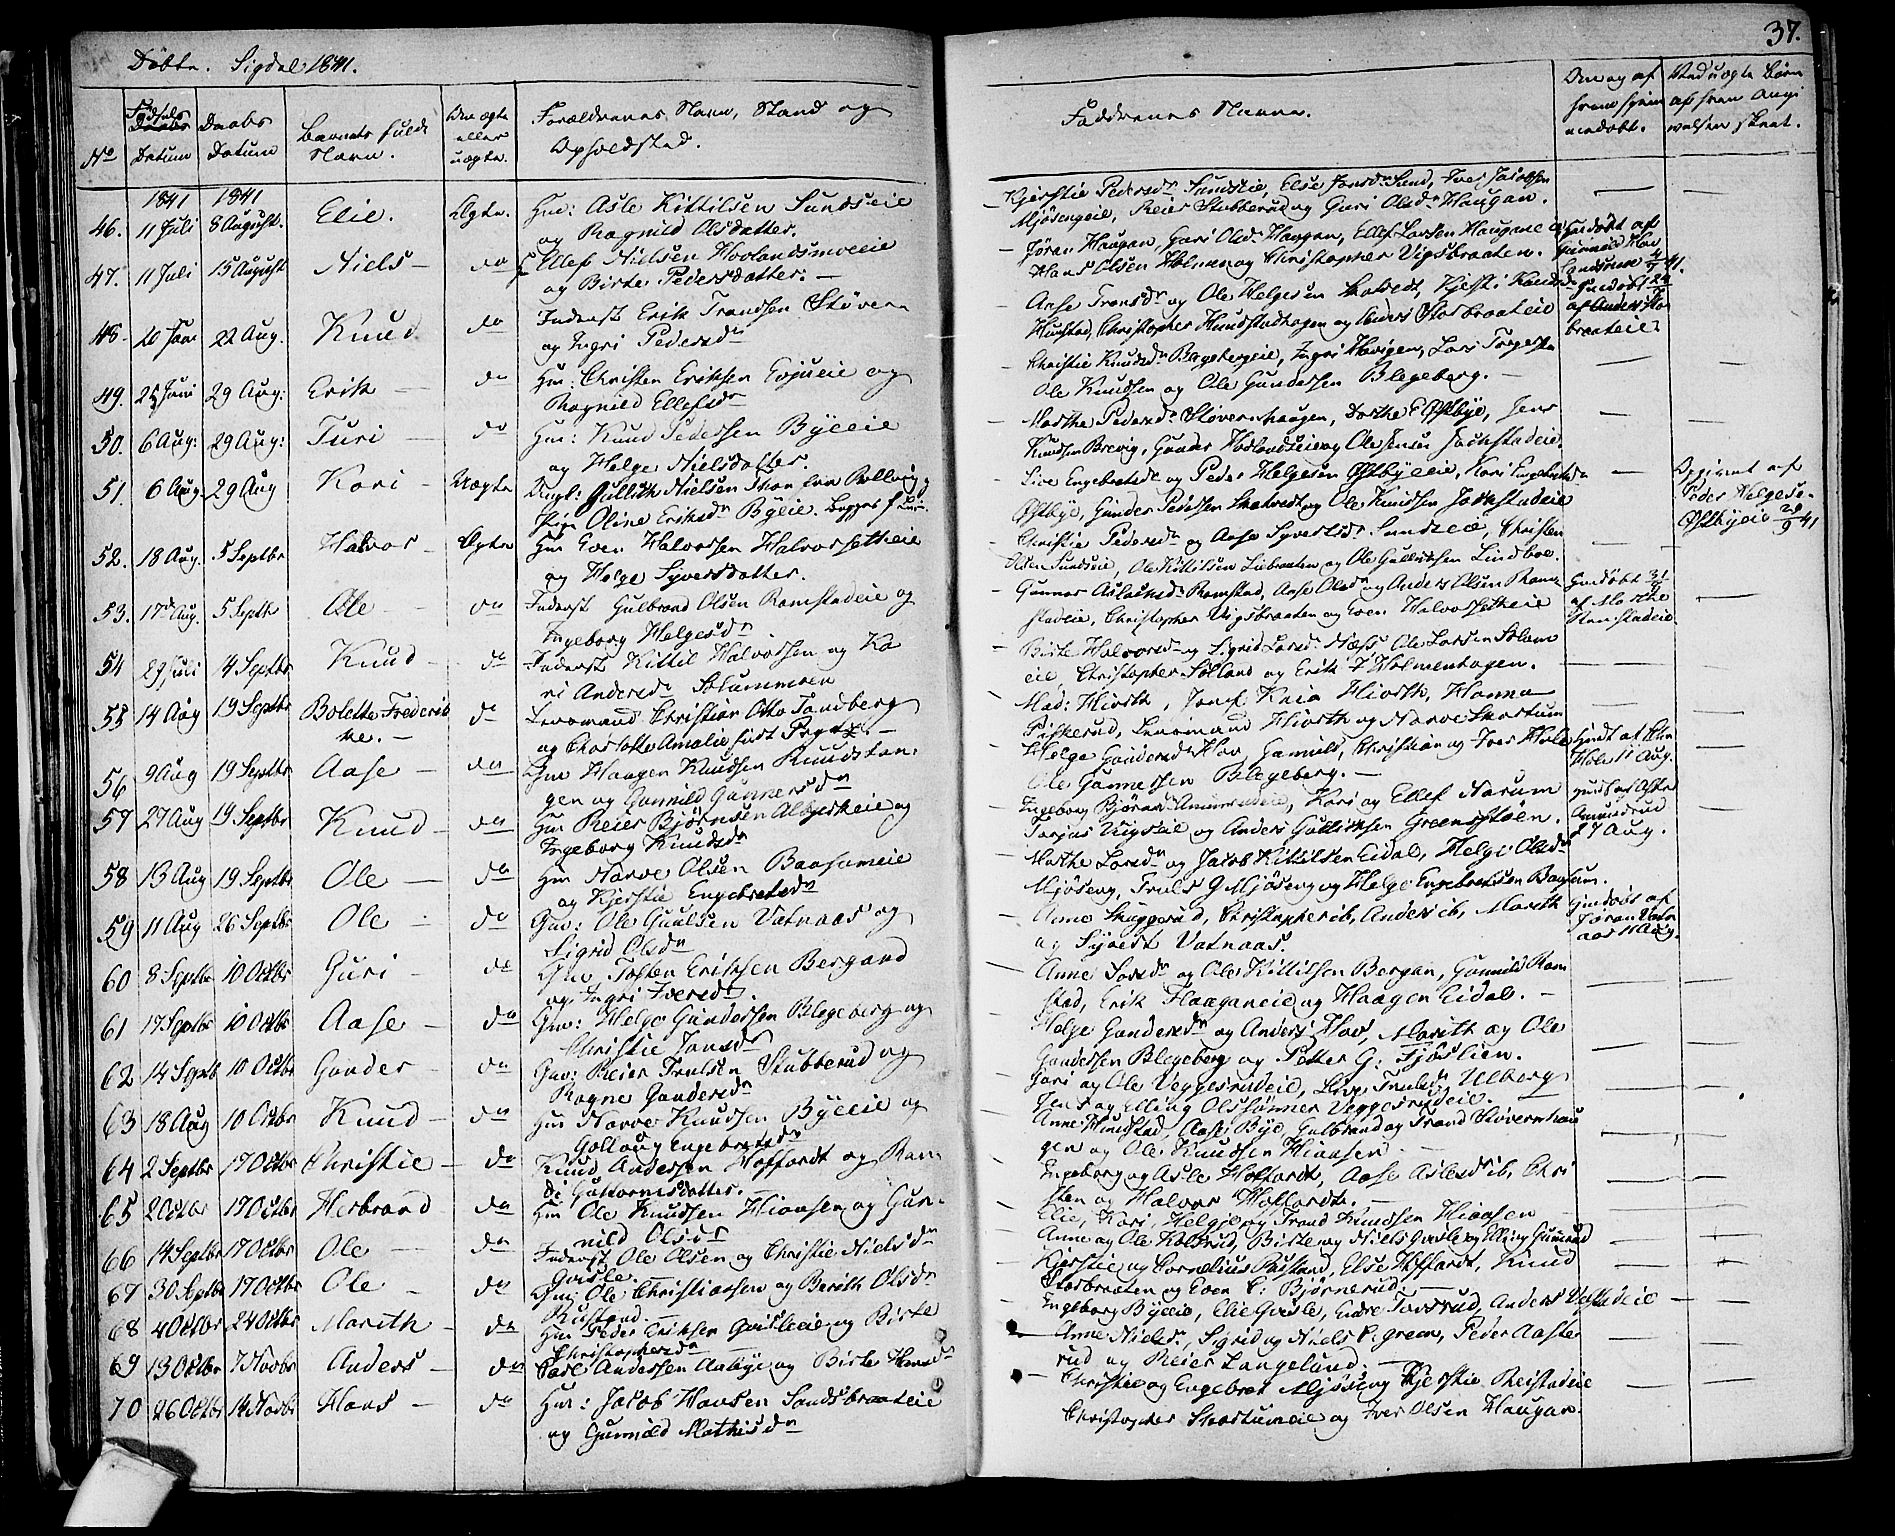 37.
Döbte. Sigdal 1841.
No
Födsels
Datum
Daabs
Datum
Barnets fulde
Navn.
Om ægte
eller
uægte.
Forældrenes Navn, Stand og
Opholdsted.
Faddrenes Navne.
Om og af
hvem hjem
medöbt.
Ved uægte Börn
af hvem Angi
velsen skeet.
1841 1841
46. 11 Juli 8 August. Elie. Ægte. Hm: Asle Kittilsen Sundseie
og Ragnild Olsdatter.
Kjerstie Pedersdr Sundseie, Else Jonsdr Sand, Iver Jacobsen
Mjösengeie, Reier Stubberud og Guri Olsdr Haugan.
47. 11 Juli 15 August Niels - do Ellef Nielsen Hovlandsmoeeie
og Birte Pedersdatter. -
Jöran Haugan, Guri Olsdr Haugan, Ellef Larsen Haugan
Hans Olsen Holmen og Christopher Vigsbraaten.
48. 22 Aug. Knud do Inderst Erik Trondsen Stövern
og Ingri Pedersdr
Aase Tronsdr og Ole Helgesen Skatvedt,
Hunstad, Christopher Hundstadhagen og Anders Storbraateie
af Anders Stor
braateie
49. 25 Juni 29 Aug: Erik - do Hm: Christen Eriksen Evjueie og
Ragnild Ellefsdr
Christie Knudsdr Bagebergeie, Ingri Hovigen,
Ole Knudsen og Ole Gundersen Blegeberg. -
50. 6 Aug: 29 Aug: Turi - do Hm: Knud Pedersen Byeeie
og Helge Nielsdatter.
Marthe Pedersdr Stövernhaugen, Dorthe Östbye, Jens
Knudsen Brevig, Gunder Hovlandseie og Ole Jensen
51. 6 Aug. 29 Aug Kari - Uægte Ungk: Gullik Nielsen
Pige Oline Eriksdr Byeie.
Live Engebretsdr og Peder Helgesen Östbyeeie, Kari Engebretsdr
Östbye, Gunder Pedersen Skatvedt og Ole Knudsen
Opgivet af
Peder Helgese
Östbyeie 41
52. 18 Aug. 5 Septbr Halvor - Ægte Hm Even Halvorsen Halvorsetheie
og Helge Syversdatter.
Christie Pedersdr og Aase Syversdr Sundseie, Christen
Olsen Sundseie, Ole Kittilsen Liebraaten og Ole Gulliksen Lindboe.
53. 17de Aug. 5 Septbr Ole - do Inderst Gulbrand Olsen Ramstadeie og
Ingeborg Helgesdr
Gunnor Aslaksdr Ramstad, Aase Olsdr og Anders Olsen Ram
stadeie, Christopher Vigsbraaten og Even Halvorsetheie
af Marthe
Ramstadeie
54 29 Juli 4 Septbr Knud - do Inderst Kittil Halvorsen og Ka
ri Andersdr Solummoen
Birte Halvorsdr og Sigrid Larsdr Næss, Ole Larsen Solum
eie, Christopher Solland og Erik T Holmenhagen.
55 14 Aug 19 Septbr Bolette Frederik
ke. - do Lensmand Christian Otto Tandberg
og Charlotte Amalie födt -
Mad: Hiorth, Jomf Kaia Hiorth, Hanna
Fiskerud, Lensmand Hiorth og Narve Skartum
56 9 Aug 19 Septbr Aase - do Gm Haagen Knudsen Kundstan:
gen og Gunnild Gunnersdr
Helge Gundersdr Hov, Gunnild, Christian og Iver Hole
Ole Gunnersen Blegeberg. -
Hole 11 Aug.
57 27 Aug 19 Septbr Knud - do Hm Reier Björnsen Albjerkeie og
Ingeborg Knudsdr
Ingeborg Björnsdr Amunrudeie, Kari og Ellef Narum
Torjus Vigseie og Anders Gulliksen Grönstöen.
Amundrud
27 Aug.
58 13 Aug 19 Septbr Ole - do Hm Narve Olsen Baasumeie
og Kjerstie Engebretsdr
Marthe Larsdr og Jacob Kittilsen Eidal, Helge Olsdr
Mjöseng, Truls G Mjöseng og Helge Engebretsen Baasum.
59 11 Aug 26 Septbr Ole - do Gm: Ole Guulsen Vatnaas og
Sigrid Olsdr
Anne Skuggerud, Christopher ib, Anders ib, Marith
og Syvert Vatnaas.
Hjemdöbt af
Jöran Vatn
aas 11 Aug.
60 8 Septbr 10 Octbr Guri - do Gm Tosten Eriksen Bergand
og Ingri Iversdr.
Anne Larsdr og Ole Kittilsen Bergan, Gunnild Ram
stad, Erik Flaaganeie og Haagen Eidal. -
61 17 Septbr 10 Octbr Aase - do Gm: Helge Gundersen Blegeberg og
Christie Jonsdr
Helge Gundersdr og Anders Hov, Marith og Ole
Gundersen Blegeberg og Petter G: Fjöslien.
62 14 Septb 10 Octbr Gunder - do Gm: Reier Trulsen Stubberud og
Ragne Gundersdr
Guri og Ole Veggesrudeie, Live Trulsdr Ulberg
Jens og Elling Olssönner Veggesrudeie.
63 18 Aug 10 Octbr Knud - do Hm Narve Knudsen Byeeie og
Gollaug Engebretsdr
Anne Hundstad, Aase Bye, Gulbrand og Trond Stövernhau
gen og Ole Knudsen Hiaasen
64 2 Septbr 17 Octbr Christie - do Knud Andersen Hoffardt og Ran
di Guttormsdatter.
Ingeborg og Asle Hoffardt, Aase Aslesdr ib, Chri
sten og Halvor Hoffardt. -
65 2 Octbr 17 Octbr Herbrand - do Hm Ole Knudsen Hiaasen og Gun-
nild Olsdr
Elie, Kari, Helge og Trond Knudsen Hiaasen
66 14 Septbr 17 Octbr Ole - do Inderst Ole Olsen og Christie Nielsdr
Gvisle.
Anne og Ole Kolsrud, Birte og Niels Gvisle og Elling Gunerud
67 30 Septbr 17 Octbr Ole - do Gm: Ole Christiansen og Berith Olsdr
Rustand
Kjerstie og Cornelius Rustand, Else Hoffardt, Knud
Storbraaten og Even C: Björnerud
68 4 Octbr 24 Octbr Marith - do Hm Peder Eriksen Gvisleeie og Birte
Christophersdr
Ingeborg Byeeie, Elie Gvisle, Endre Tovsrud, Anders
69 13 Octbr 7 Novbr Anders - do Carl Andersen Aabye og Birte Hansdr
Anne Nielsdr, Sigrid og Niels C. green, Peder Aaste
rud og Reier Langelund. -
70 26 Octbr 14 Novbr Hans - do Hm: Jacob Hansen Sandsbraateie
og Gunnild Mathisdr
Christie og Engebret Mjöseng Kjerstie Reistadeie
Christopher Skartumeie og Iver Olsen Haugan.